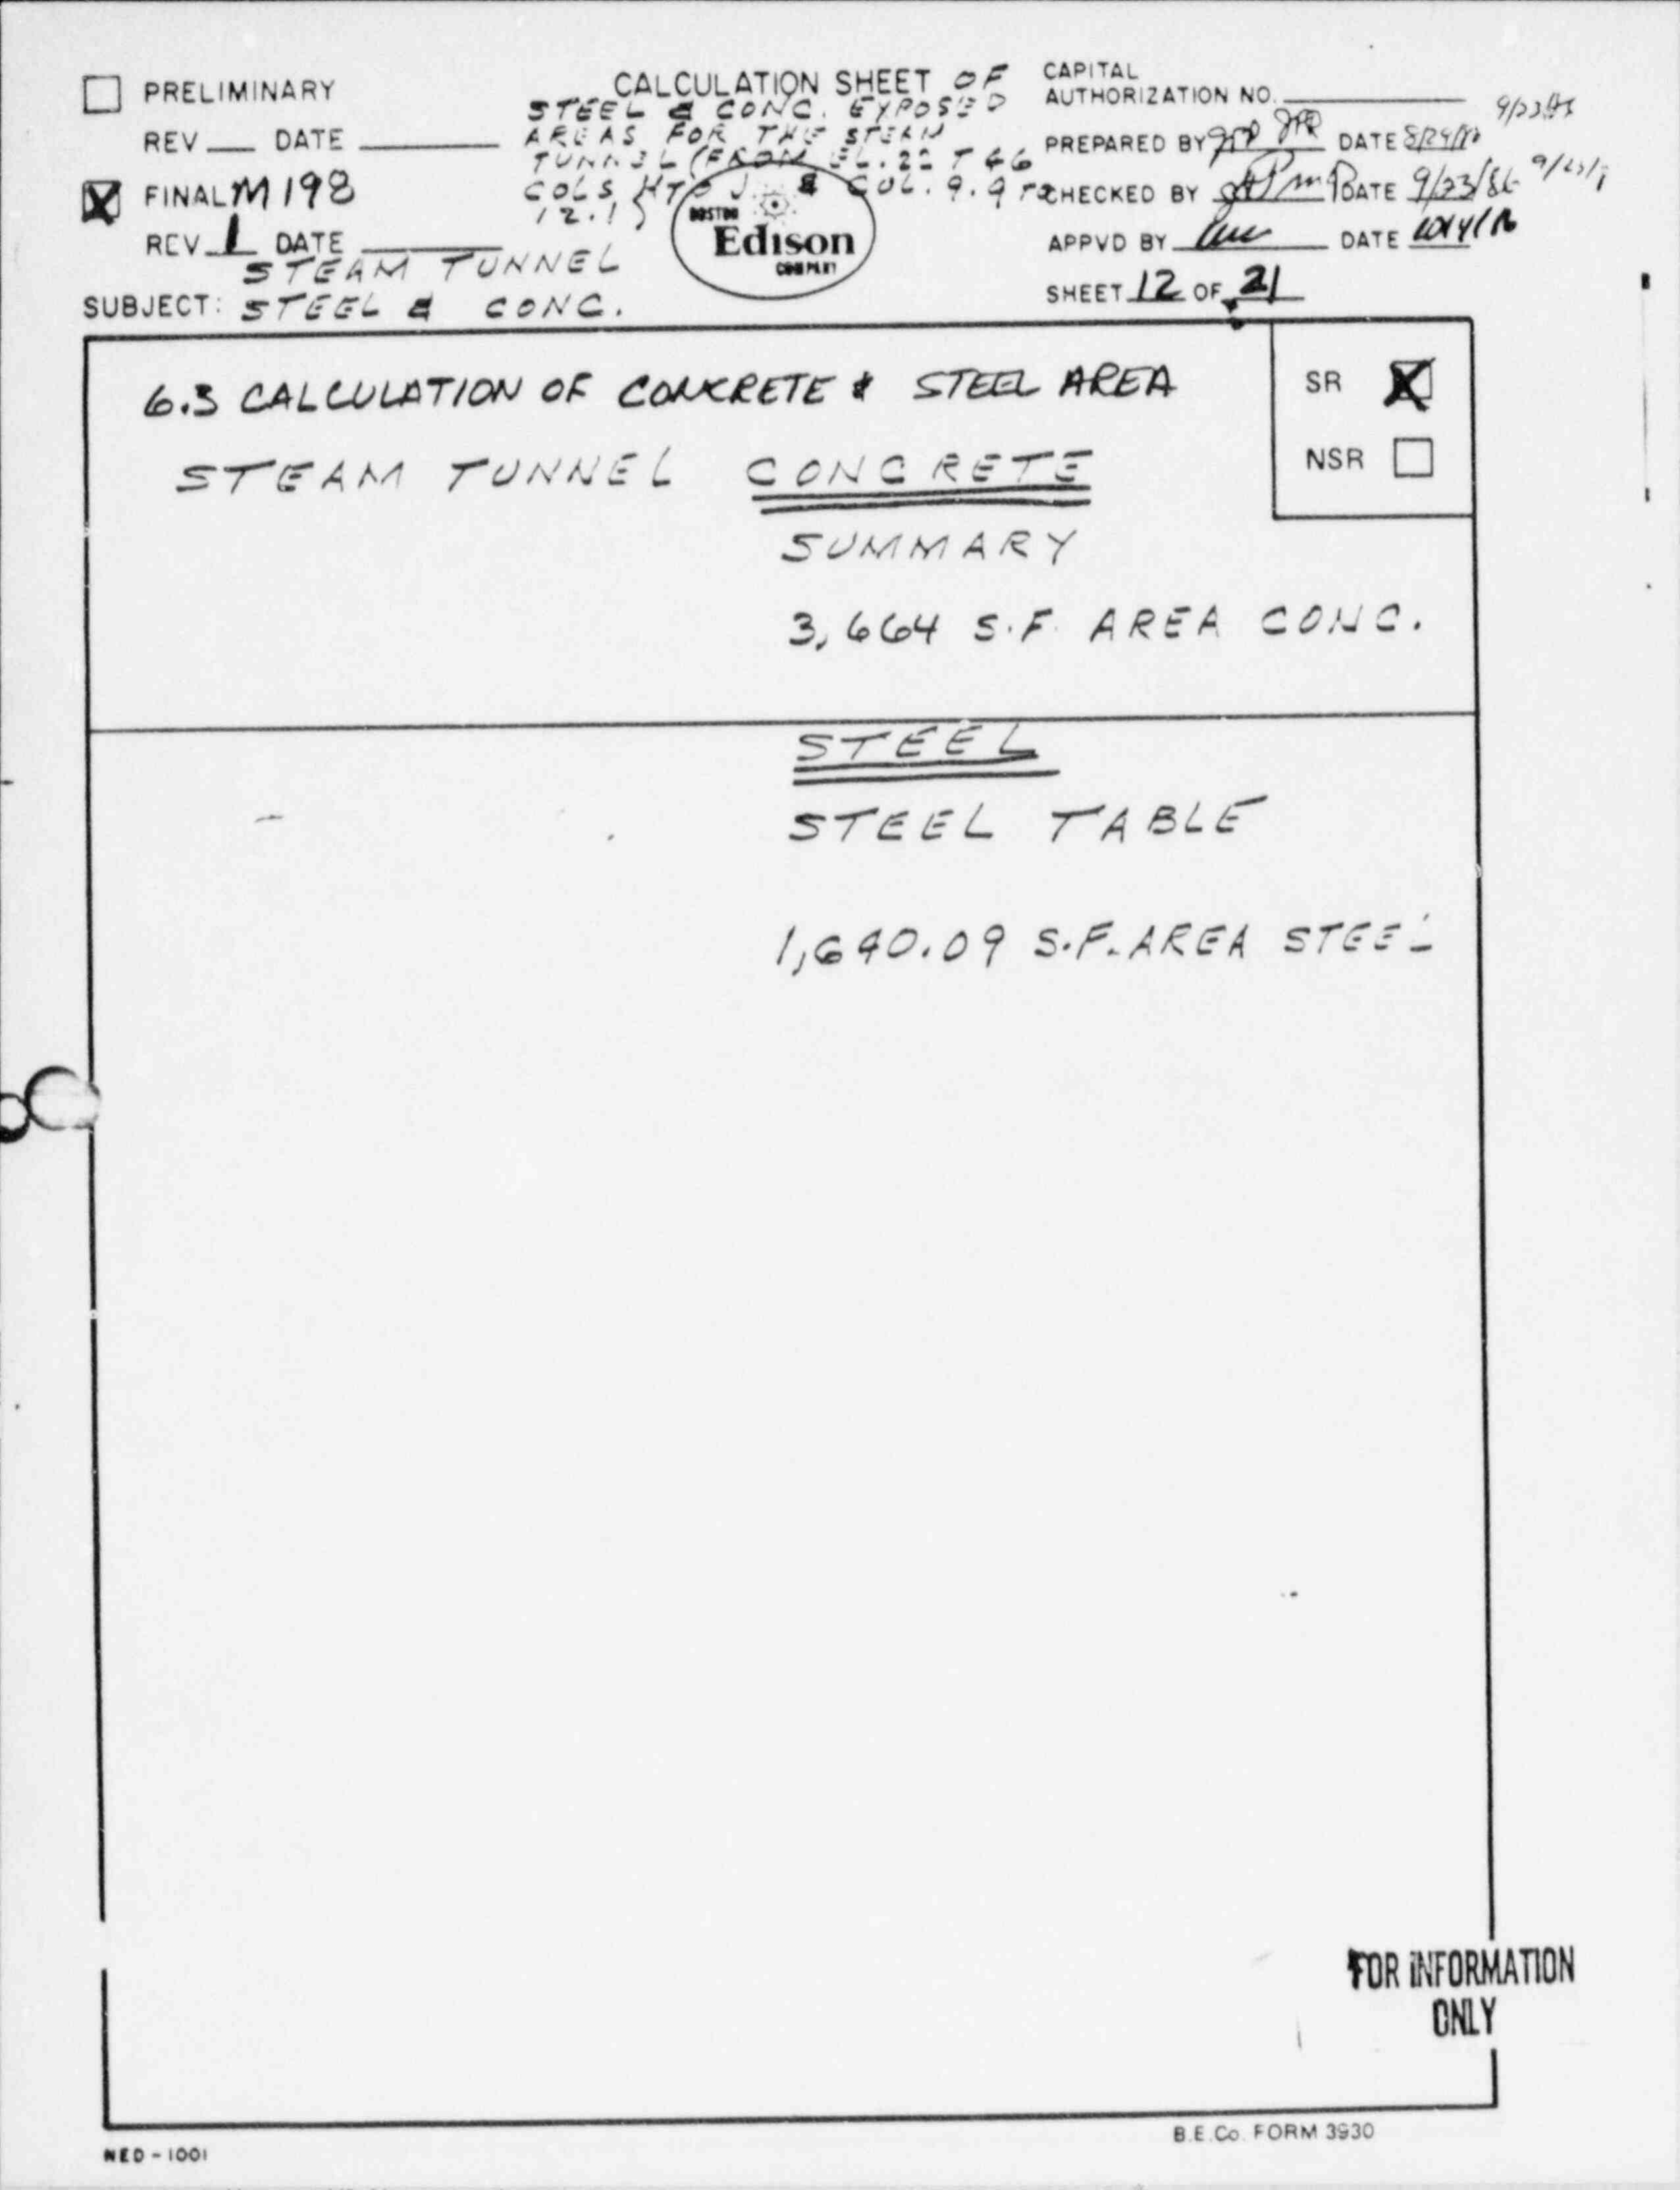 ☐ PRELIMINARY
REV ___ DATE ______
☒ FINAL M198
REV 1 DATE ______
CALCULATION SHEET OF
STEEL & CONC. EXPOSED
AREAS FOR THE STEAM
TUNNEL (FROM EL. 22 T 46
COLS H TO J & COL. 9.9 TO
12.1)
BOSTON
Edison
COMPANY
CAPITAL
AUTHORIZATION NO. ______
PREPARED BY DATE
CHECKED BY DATE 9/23/86
APPVD BY DATE
SHEET 12 OF 21
STEAM TUNNEL
SUBJECT: STEEL & CONC.
6.3 CALCULATION OF CONCRETE & STEEL AREA
SR ☒
NSR ☐
STEAM TUNNEL CONCRETE
SUMMARY
3,664 S.F. AREA CONC.
STEEL
STEEL TABLE
1,690.09 S.F. AREA STEEL
FOR INFORMATION
ONLY
NED-1001
B.E.Co. FORM 3930